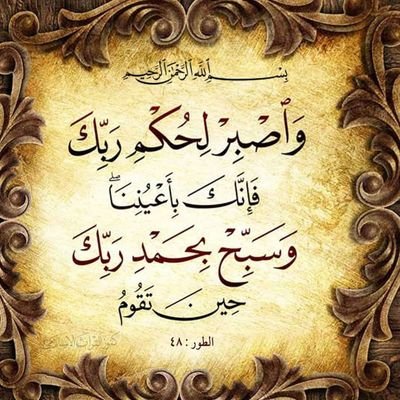 بِسْمِ ٱللَّهِ ٱلرَّحْمَٰنِ ٱلرَّحِيمِ
وَٱصْبِرْ لِحُكْمِ رَبِّكَ
فَإِنَّكَ بِأَعْيُنِنَا ۖ
وَسَبِّحْ بِحَمْدِ رَبِّكَ
حِينَ تَقُومُ
الطور : ٤٨